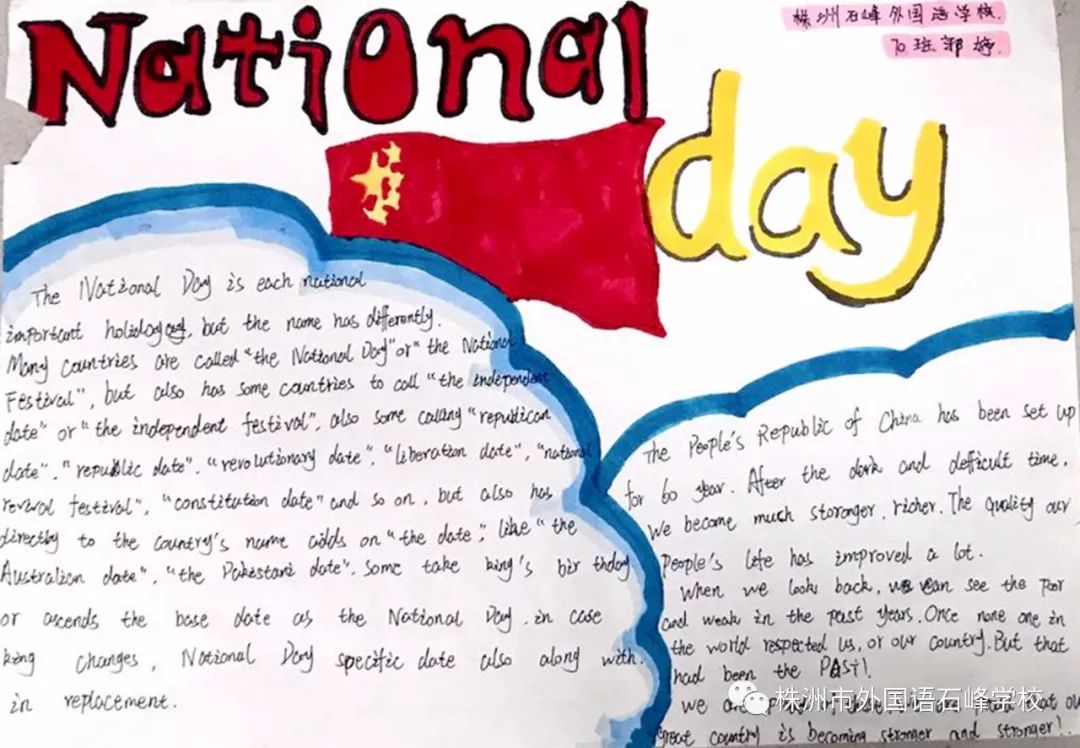 National
day
株洲石峰外国语学校.
班郭婷.
The National Day is each national
important holiday, but the name has differently.
Many countries are called "the National Day" or "the National
Festival", but also has some countries to call "the independent
date" or "the independent festival", also some calling "republican
date", "republic date", "revolutionary date", "liberation date", "national
revival festival", "constitution date" and so on, but also has
directly to the country's name adds on "the date", like "the
Australian date", "the Pakistani date". Some take king's birthday
or ascends the base date as the National Day. in case
king changes, National Day specific date also along with.
in replacement.
The People's Republic of China has been set up
for 60 year. After the dark and defficult time,
we become much storonger, richer. The quality our
People's life has improved a lot.
When we look back, we can see the poor
and weak in the past years. Once none one in
the world respected us, or our country. But that
had been the PAST!
we
great country is becoming stronger and stronger!
株洲市外国语石峰学校